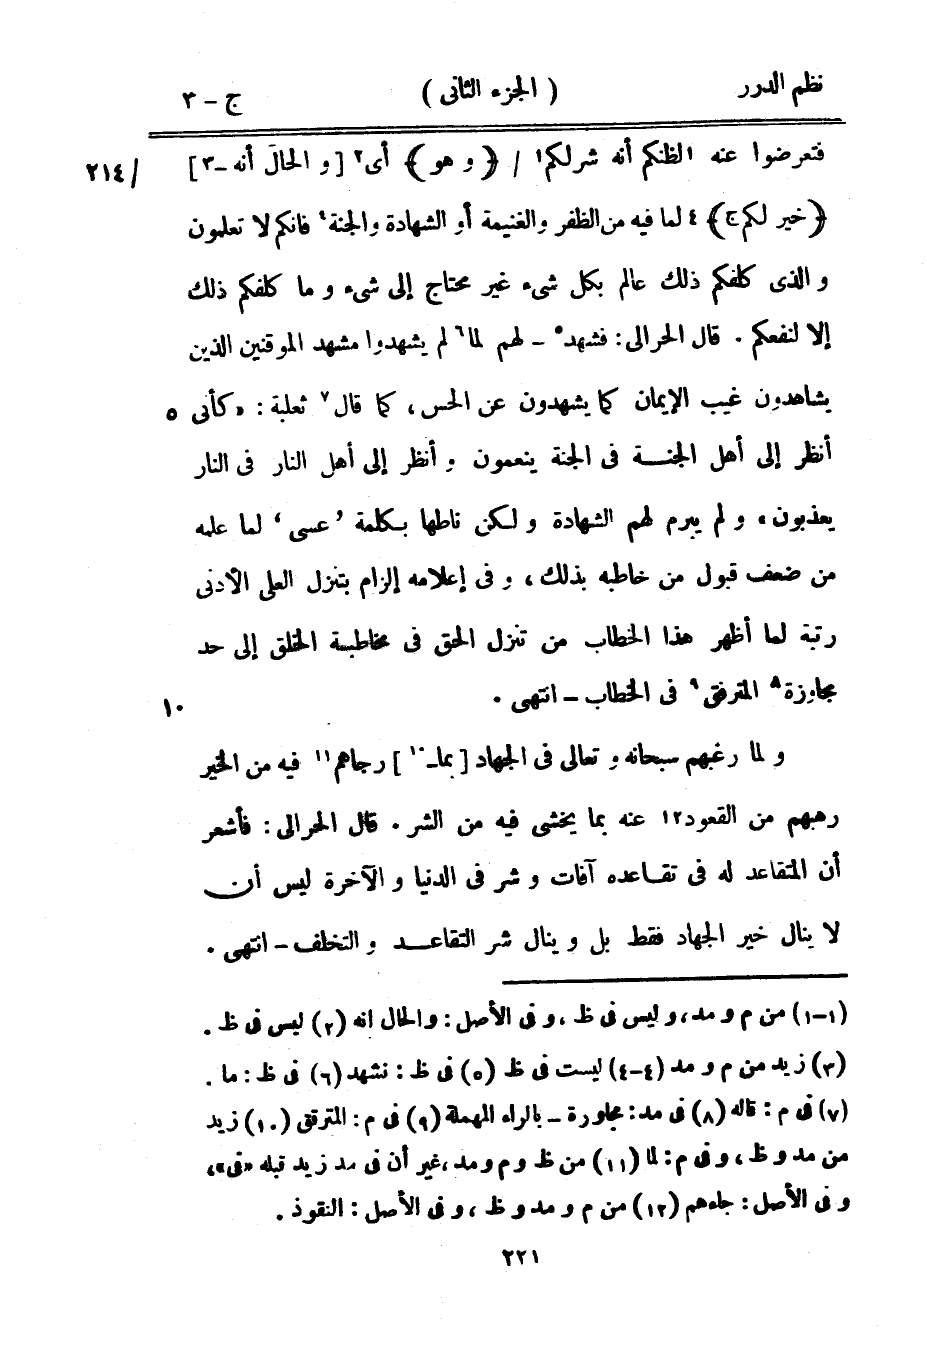 نظم الدرر ( الجزء الثانى ) ج - ٣
فتعرضوا عنه ١لظنكم أنه شر لكم١ / ﴿ و هو ﴾ أى٢ [ و الحال أنه -٣ ] /٢١٤
﴿ خير لكم ج ﴾ ٤ لما فيه من الظفر و الغنيمة أو الشهادة و الجنة٤ فانكم لا تعلمون
و الذى كلفكم ذلك عالم بكل شىء غير محتاج إلى شىء و ما كلفكم ذلك
إلا لنفعكم . قال الحرالى : فشهد٥ - لهم لما٦ لم يشهدوا مشهد الموقنين الذين
يشاهدون غيب الإيمان كما يشهدون عن الحس ، كما قال٧ ثعلبة : « كأنى ٥
أنظر إلى أهل الجنة فى الجنة ينعمون و أنظر إلى أهل النار فى النار
يعذبون » و لم يبرم لهم الشهادة و لكن ناطها بكلمة ’ عسى ‘ لما علمه
من ضعف قبول من خاطبه بذلك ، و فى إعلامه إلزام بتنزل العلى الأدنى
رتبة لما أظهر هذا الخطاب من تنزل الحق فى مخاطبة الخلق إلى حد
مجاوزة٨ المترفق٩ فى الخطاب - انتهى . ١٠
و لما رغبهم سبحانه و تعالى فى الجهاد [ بما -١٠ ] رجاهم١١ فيه من الخير
رهبهم من القعود١٢ عنه بما يخشى فيه من الشر . قال الحرالى : فأشعر
أن المتقاعد له فى تقاعده آفات و شر فى الدنيا و الآخرة ليس أن
لا ينال خير الجهاد فقط بل و ينال شر التقاعد و التخلف - انتهى .
(١-١) من م و مد ، و ليس فى ظ ، و فى الأصل : و الحال انه (٢) ليس فى ظ .
(٣) زيد من م و مد (٤-٤) ليست فى ظ (٥) فى ظ : نشهد (٦) فى ظ : ما .
(٧) فى م : قاله (٨) فى مد : مجاورة - بالراء المهملة (٩) فى م : المترقق (١٠) زيد
من مد و ظ ، و فى م : لما (١١) من ظ و م و مد ، غير أن فى مد زيد قبله « فى » ،
و فى الأصل : جاءهم (١٢) من م و مد و ظ ، و فى الأصل : النقوذ .
٢٢١